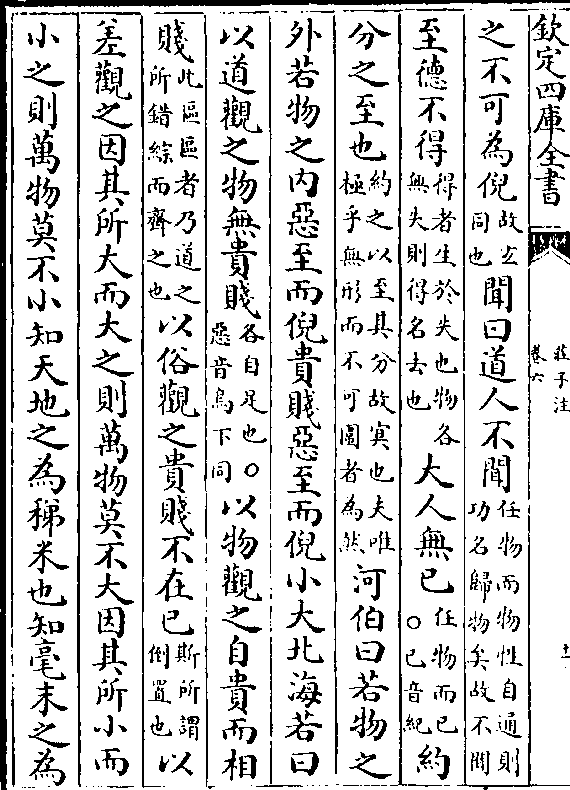 欽定四庫全書
莊子注
卷六
十一
之不可為倪故玄同也聞曰道人不聞任物而物性自通則功名歸物矣故不聞
至德不得得者生於失也物各無失則得名去也大人無已任物而已〇已音紀約
分之至也約之以至其分故冥也夫唯極乎無形而不可圍者為然河伯曰若物之
外若物之内惡至而倪貴賤惡至而倪小大北海若曰
以道觀之物無貴賤各自足也〇惡音烏下同以物觀之自貴而相
賤此區區者乃道之所錯綜而齊之也以俗觀之貴賤不在已斯所謂倒置也以
差觀之因其所大而大之則萬物莫不大因其所小而
小之則萬物莫不小知天地之為稊米也知毫末之為